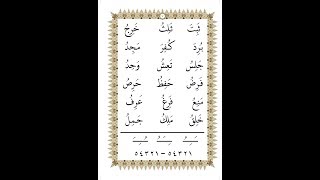 ثَبَتَ ثَلِثُ خَرِجُ
بُرِدَ كُفِرَ مَجِدُ
جَلِسُ تَعِسُ وَجِدُ
فَرِضُ حَفِظُ حَرِصُ
مَنِعَ فَرِغُ عَرِفُ
خَلِقُ مَلِكُ جَمِلُ
٥٤٣٢١ – ٥٤٣٢١